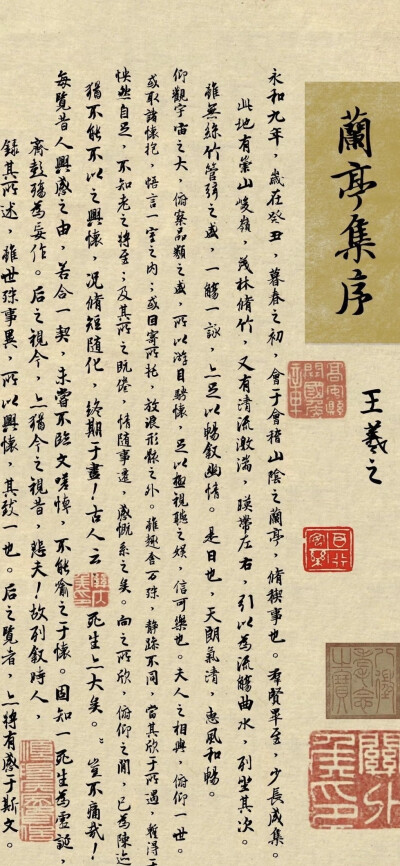 蘭亭集序
王羲之
永和九年，歲在癸丑，暮春之初，會于會稽山陰之蘭亭，脩稧事也。羣賢畢至，少長咸集。
此地有崇山峻嶺，茂林脩竹，又有清流激湍，暎帶左右，引以為流觴曲水，列坐其次。
雖無絲竹管弦之盛，一觴一詠，亦足以暢叙幽情。是日也，天朗氣清，惠風和暢。
仰觀宇宙之大，俯察品類之盛，所以游目騁懷，足以極視聽之娛，信可樂也。夫人之相與，俯仰一世。
或取諸懷抱，悟言一室之内；或因寄所托，放浪形骸之外。雖趣舍万殊，靜躁不同，當其欣于所遇，暫得于
怏然自足，不知老之將至；及其所之既倦，情隨事遷，感慨系之矣。向之所欣，俯仰之閒，已為陳迹
猶不能不以之興懷，况脩短隨化，終期于盡！古人云 死生亦大矣。”豈不痛哉！
每覽昔人興感之由，若合一契，未嘗不臨文嗟悼，不能喻之于懷。固知一死生為虛誕，
齊彭殤為妄作。后之視今，亦猶今之視昔，悲夫！故列叙時人，
錄其所述，雖世殊事異，所以興懷，其致一也。后之覽者，亦將有感于斯文。